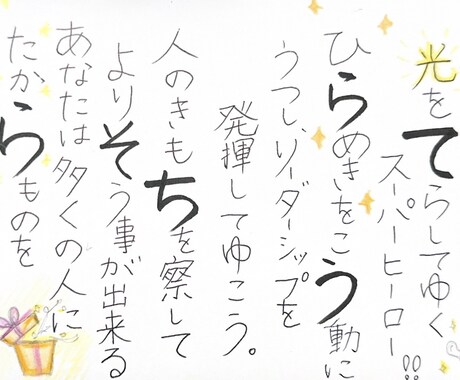 光をてらしてゆく
スーパーヒーロー!!
ひらめきをこう動に
うつし、リーダーシップを
発揮してゆこう。
人のきもちを察して
よりそう事が出来る
あなたは多くの人に
たからものを